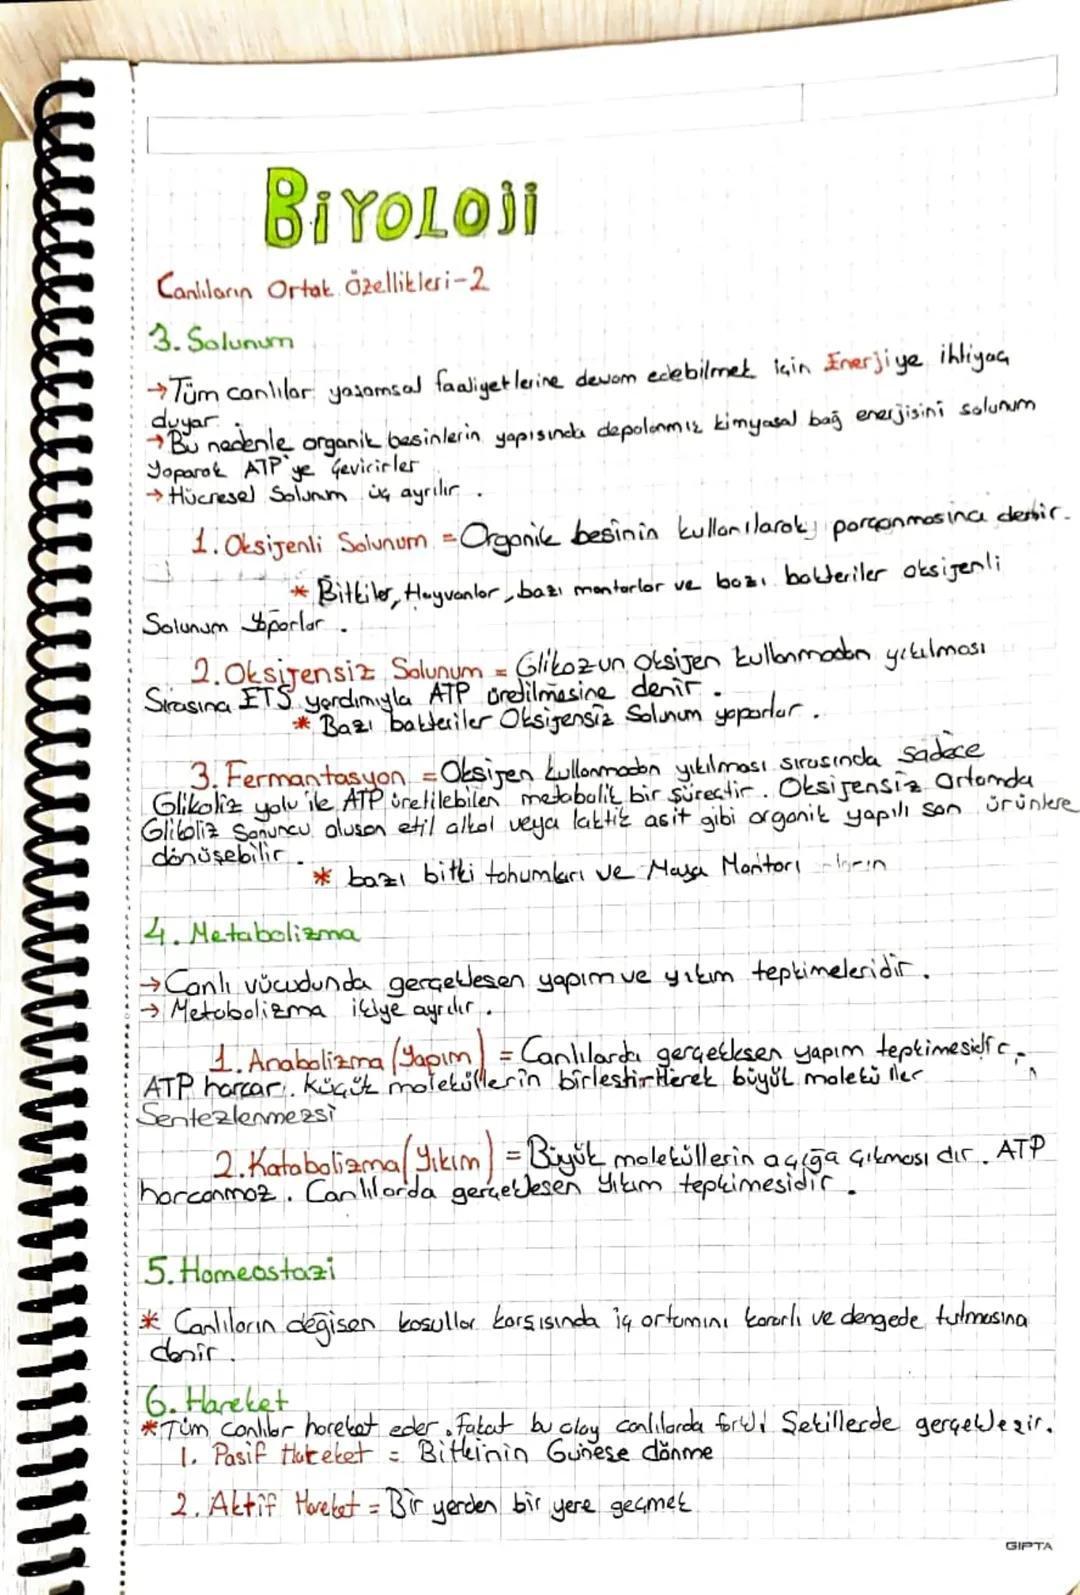 BİYOLOJİ
Canlıların Ortak Özellikleri-2
3. Solunum
→Tüm canlılar yaşamsal faaliyetlerine devam edebilmek için Enerjiye ihtiyaç
duyar.
→Bu nedenle organik besinlerin yapısında depolanmış kimyasal bağ enerjisini solunum
Yaparak ATP'ye Çevirirler
→ Hücresel Solunum üç ayrılır.
1. Oksijenli Solunum = Organik besinin kullanılarak parçanmasına denir.
* Bitkiler, Hayvanlar, bazı mantarlar ve bazı bakteriler oksijenli
Solunum Yaparlar.
2. Oksijensiz Solunum = Glikozun oksijen kullanmadan yıkılması
Sırasına ETS yardımıyla ATP üretilmesine denir.
* Bazı bakteriler Oksijensiz Solunum yaparlar.
3. Fermantasyon = Oksijen kullanmadan yıkılması sırasında sadece
Glikoliz yolu ile ATP üretilebilen metabolik bir süreçtir. Oksijensiz Ortamda
Glikoliz Sonuncu oluşan etil alkol veya laktik asit gibi organik yapılı son ürünlere
dönüşebilir.
* bazı bitki tohumları ve Maya Mantarı
4. Metabolizma
→Canlı vücudunda gerçekleşen yapım ve yıkım tepkimeleridir.
→ Metabolizma ikiye ayrılır.
1. Anabolizma (Yapım) = Canlılarda gerçekleşen yapım tepkimesidir.
ATP harcar. Küçük moleküllerin birleştirilerek büyük moleküller
Sentezlenmezsi
2. Katabolizma (Yıkım) = Büyük moleküllerin açığa çıkması dır. ATP
harcanmaz. Canlılarda gerçekleşen yıkım tepkimesidir.
5. Homeostazi
* Canlıların değişen koşullar karşısında iç ortamını kararlı ve dengede tutmasına
denir.
6. Hareket
*Tüm canlılar hareket eder. Fakat bu olay canlılarda farklı Şekillerde gerçekleşir.
1. Pasif Hareket = Bitkinin Güneşe dönme
2. Aktif Hareket = Bir yerden bir yere geçmek
GIPTA